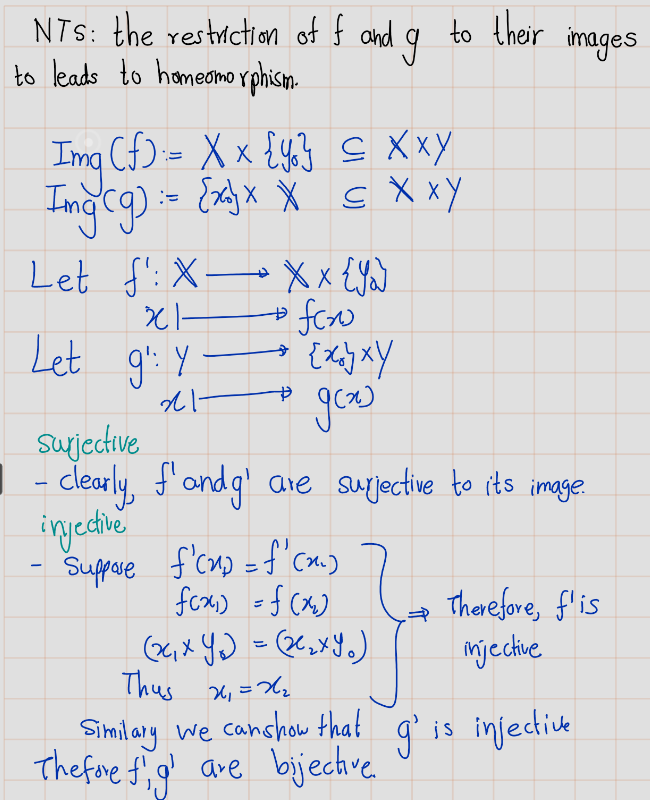 NTS: the restriction of f and g to their images
to leads to homeomorphism.
Img(f) := X × {y₀} ⊆ X × Y
Img(g) := {x₀} × X ⊆ X × Y
Let f': X → X × {y₀}
x ↦ f(x)
Let g': Y → {x₀} × Y
x ↦ g(x)
surjective
- clearly, f' and g' are surjective to its image.
injective
- Suppose f'(x₁) = f'(x₂)
f(x₁) = f(x₂)
(x₁ × y₀) = (x₂ × y₀)
Thus x₁ = x₂
⇒ Therefore, f' is
injective
Similary we can show that g' is injective
Thefore f', g' are bijective.